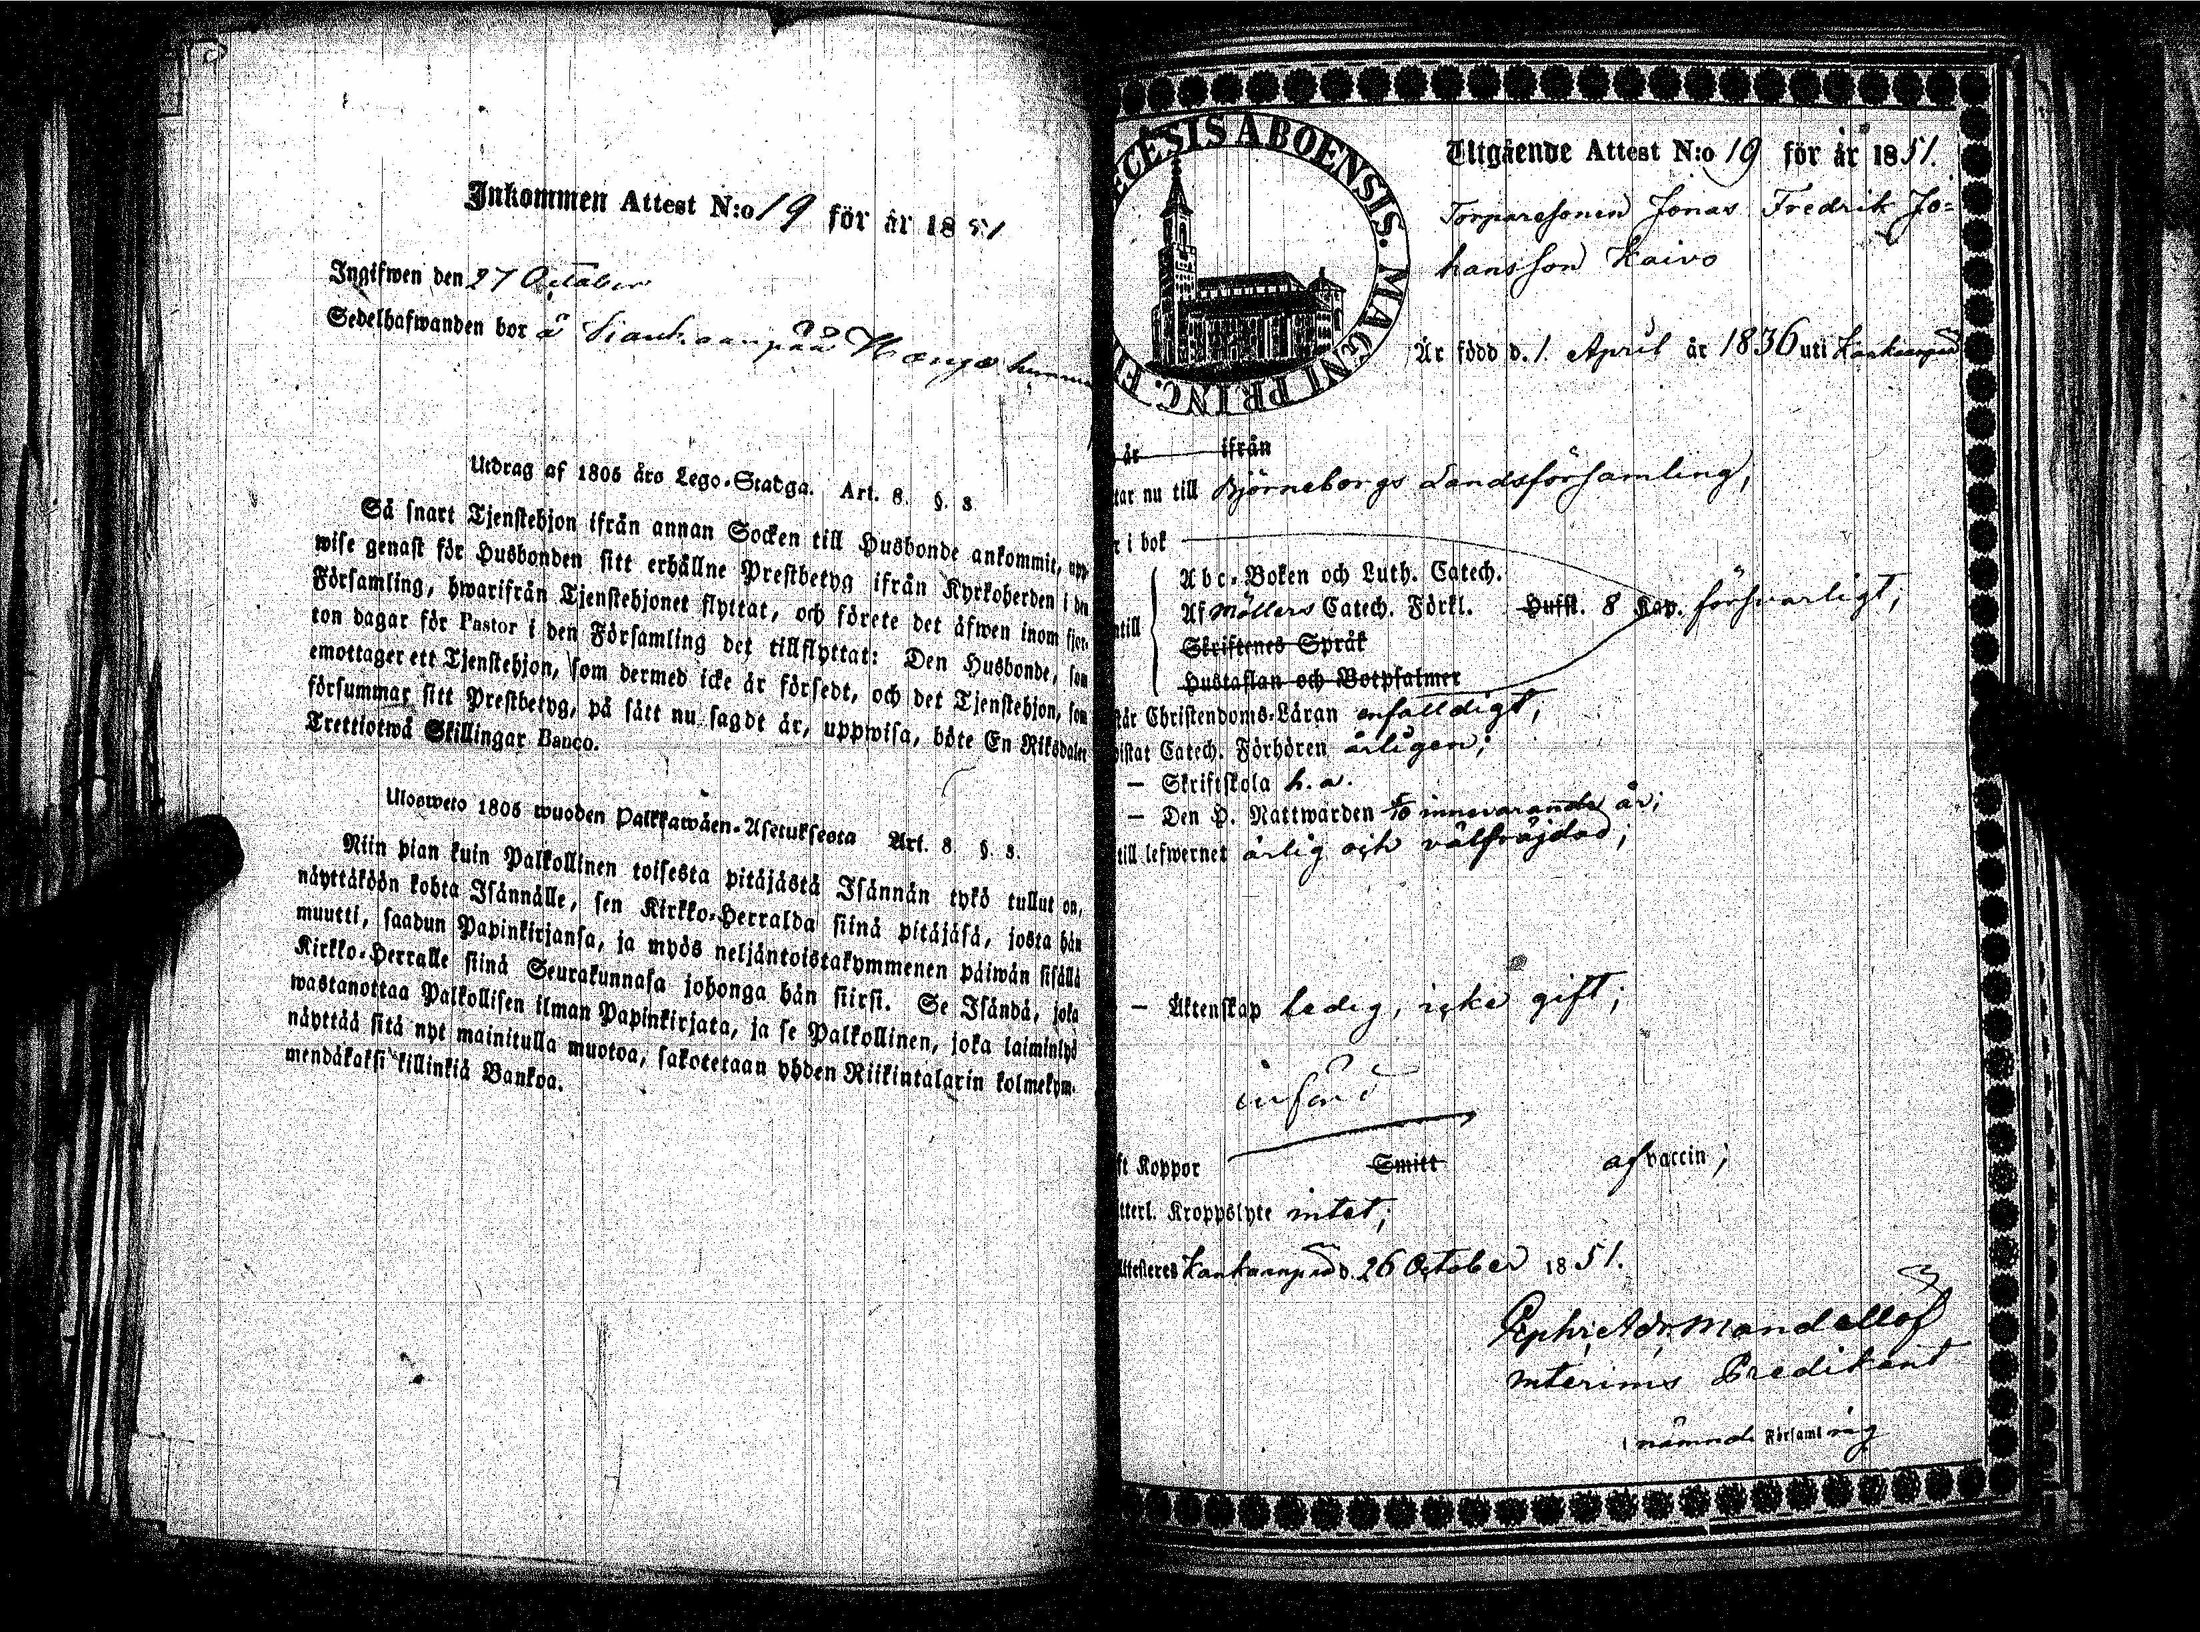 Inkommen Attest N:o 19 för år 1851
Ingifwen den 27 October
Sedelhafwanden bor å
Utdrag af 1805 års Lego-Stadga. Art. 8. §. 3.
Så snart Tjenstehjon ifrån annan Socken till Husbonde ankommit, upp-
wise genast för Husbonden sitt erhållne Prestbetyg ifrån Kyrkoherden i den
Församling, hwarifrån Tjenstehjonet flyttat, och förete det äfwen inom fjor-
ton dagar för Pastor i den Församling det tillflyttat: Den Husbonde, som
emottager ett Tjenstehjon, som dermed icke är försedt, och det Tjenstehjon, som
försummar sitt Prestbetyg, på sätt nu sagdt är, uppwisa, böte En Riksdaler
Trettiotwå Skillingar Banco.
Ulosweto 1805 wuoden Palkkawäen-Asetuksesta Art. 8. §. 3.
Niin pian kuin Palkollinen toisesta pitäjästä Isännän tykö tullut on,
näyttäköön kohta Isännälle, sen Kirkko-Herralda siinä pitäjäsä, josta hän
muutti, saadun Papinkirjansa, ja myös neljäntoistakymmenen päiwän sisällä
Kirkko-Herralle siinä Seurakunnasa johonga hän siirsi. Se Isändä, joka
wastanottaa Palkollisen ilman Papinkirjata, ja se Palkollinen, joka laiminlyö
näyttää sitä nyt mainitulla muotoa, sakotetaan yhden Riikintalarin kolmekym-
mendäkaksi killinkiä Bankoa.
ECESIS ABOENSIS. MAGNI PRINC. FI
Utgående Attest N:o 19 för år 1851.
Torparesonen Jonas Fredrik Jo-
hansson Kaivo
Är född d. 1. April år 1836 uti Kankaanpää
år ifrån
tar nu till Björneborgs Landsförsamling,
i bok
Abc-Boken och Luth. Catech.
Af Möllers Catech. Förkl. Hufst. 8 Kap. försvarligt;
ntill
Skriftenes Språk
Hustaflan och Botpsalmer
står Christendoms-Läran enfalldigt;
istat Catech. Förhören årligen;
— Skriftskola h. a.
— Den H. Nattwarden innevarande år;
till lefwernet ärlig och välfräjdad;
— Äktenskap ledig, icke gift;
införd
ft Koppor Smitt af vaccin;
tterl. Kroppslyte intet;
Attesteres Kankaanpää d. 26 October 1851.
Mandellof
interims Predikant
i nämnde Församling